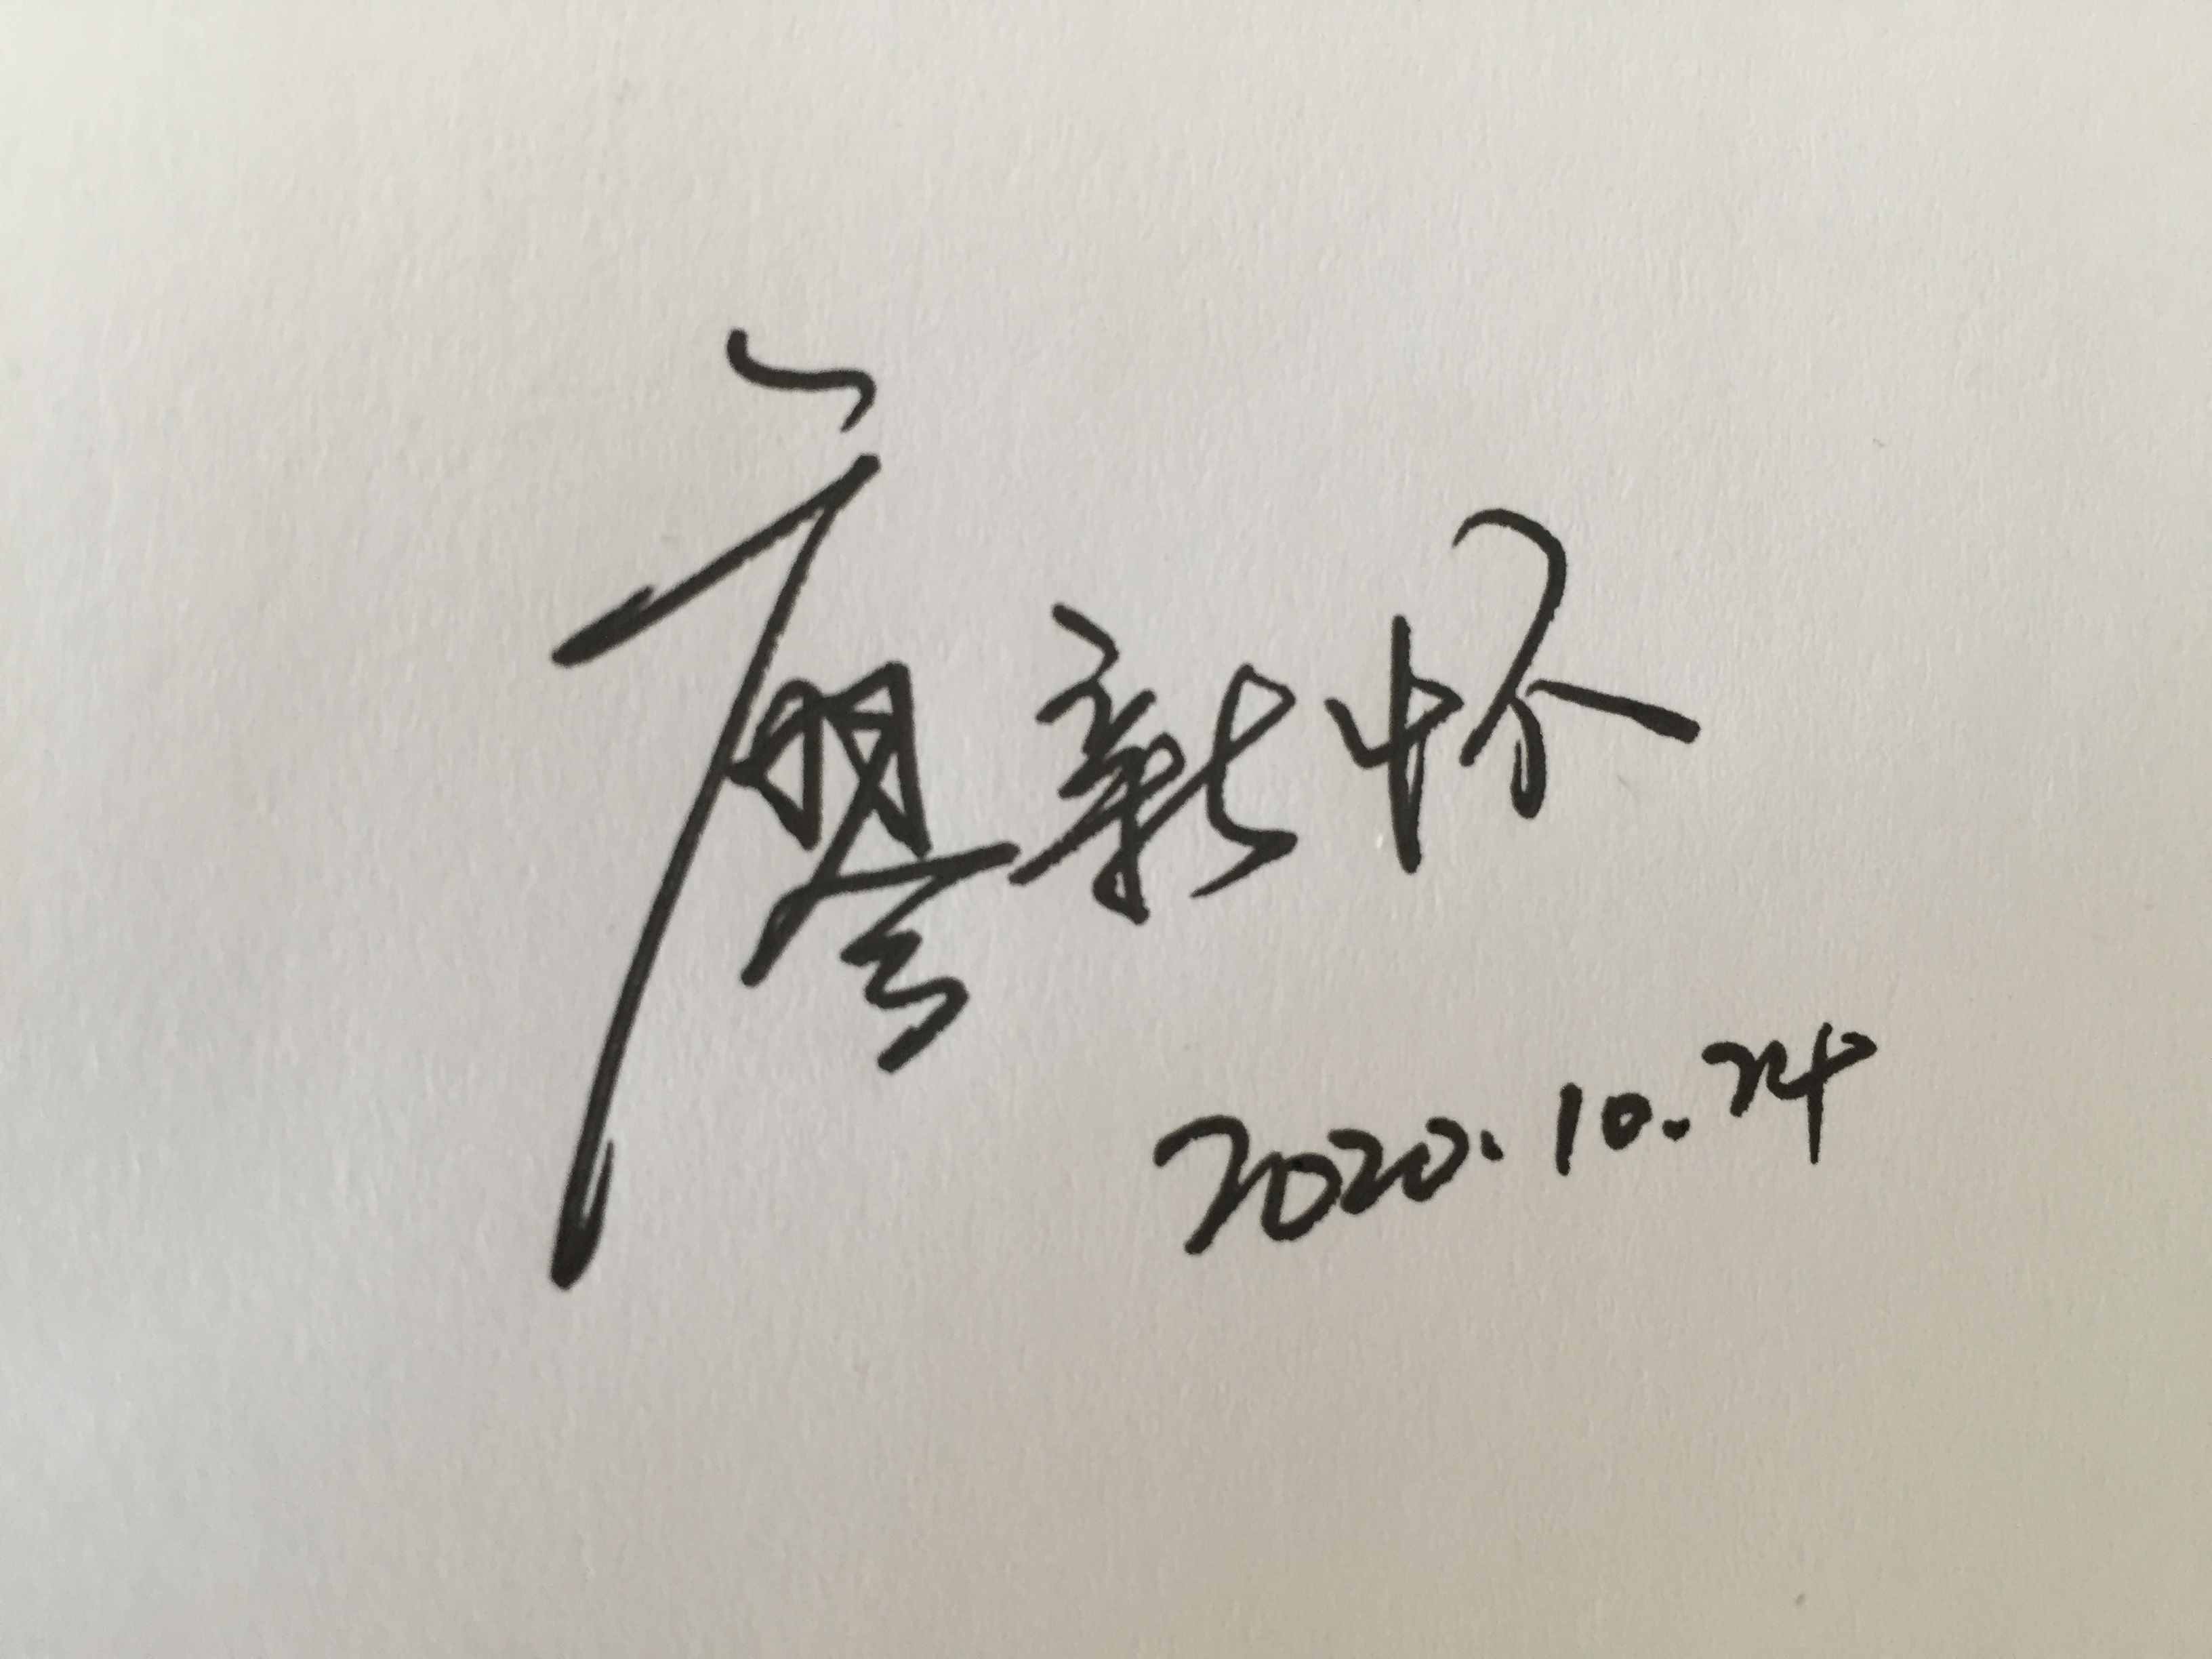 廖新怀
2020.10.24